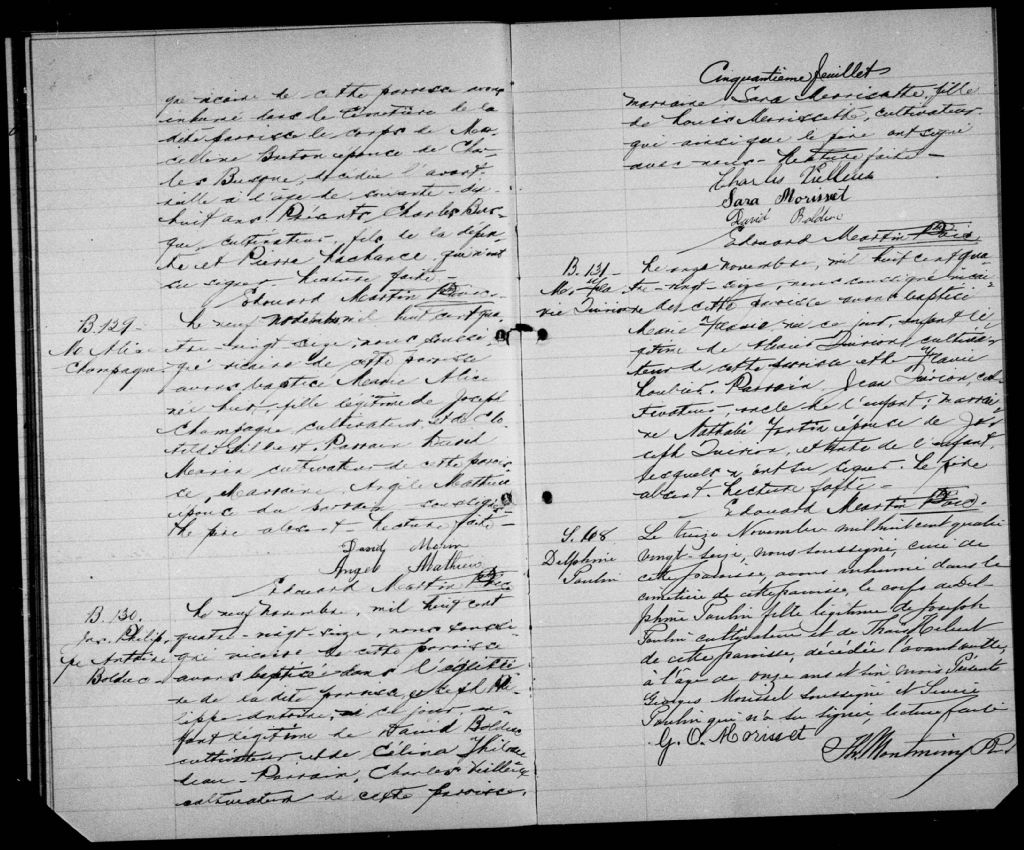 gné vicaire de cette paroisse avons
inhumé dans le cimetière de la
dite paroisse le corps de Mar-
celline Breton épouse de Char-
les Busque, décédée l'avant
veille à l'âge de soixante-dix
huit ans. Présents, Charles Bus-
que, cultivateur, fils de la défun-
te et Pierre Lachance, qui n'ont
su signer. Lecture faite -
Edouard Martin Ptre Vic.
B. 129 -
M. Alice
Champagne
Le neuf novembre mil huit cent qua-
tre-vingt seize, nous soussi-
gné vicaire de cette paroisse
avons baptisé Marie Alice
née hier, fille légitime de Joseph
Champagne, cultivateur et de Clo-
tilde Gilbert. Parrain David
Morin cultivateur de cette parois-
se, Marraine, Angèle Mathieu
épouse du parrain soussigné
le père absent - Lecture faite -
David Morin
Angèle Mathieu
Edouard Martin Ptre Vic
B. 130.
Jos. Philip-
pe Antoine
Bolduc
Le neuf novembre, mil huit cent
quatre-vingt-seize, nous soussi-
gné vicaire de cette paroisse
avons baptisé dans l'église
de la dite paroisse, Joseph Phi-
lippe Antoine, né ce jour, en-
fant légitime de David Bolduc
cultivateur et de Célina Thibau-
deau - Parrain, Charles Veilleux
cultivateur de cette paroisse,
Cinquantième feuillet
marraine Sara Morrissette, fille
de Louis Morrissette, cultivateur
qui ainsi que le père ont signé
avec nous - Lecture faite -
Charles Veilleux
Sara Morisset
David Bolduc
Edouard Martin Ptre Vic.
B. 131 -
M.
vie Quirion
Le onze novembre, mil huit cent qua-
tre-vingt-seize, nous soussigné vicai-
re de cette paroisse avons baptisé
Marie Flavie, née ce jour, enfant lé-
gitime de Quirion, cultiva-
teur de cette paroisse et de Flavie
Parrain, Jean Quirion, cul-
tivateur, oncle de l'enfant; marrai-
ne Nathalie Fortin épouse de Jo-
seph Quirion, et tante de l'enfant,
lesquels n'ont su signer. Le père
absent. Lecture faite -
Edouard Martin Ptre Vic.
S. 108
Delphine
Poulin
Le treize Novembre mil huit cent quatre
vingt-seize, nous soussigné, curé de
cette paroisse, avons inhumé dans le
cimetière de cette paroisse, le corps de Del-
phine Poulin fille légitime de Joseph
Poulin cultivateur et de
de cette paroisse, décédée l'avant veille,
à l'âge de onze ans et six mois Présents
Georges Morisset soussigné et
Poulin qui n'a su signer lecture faite
G. O. Morisset
Th. Montminy Ptre